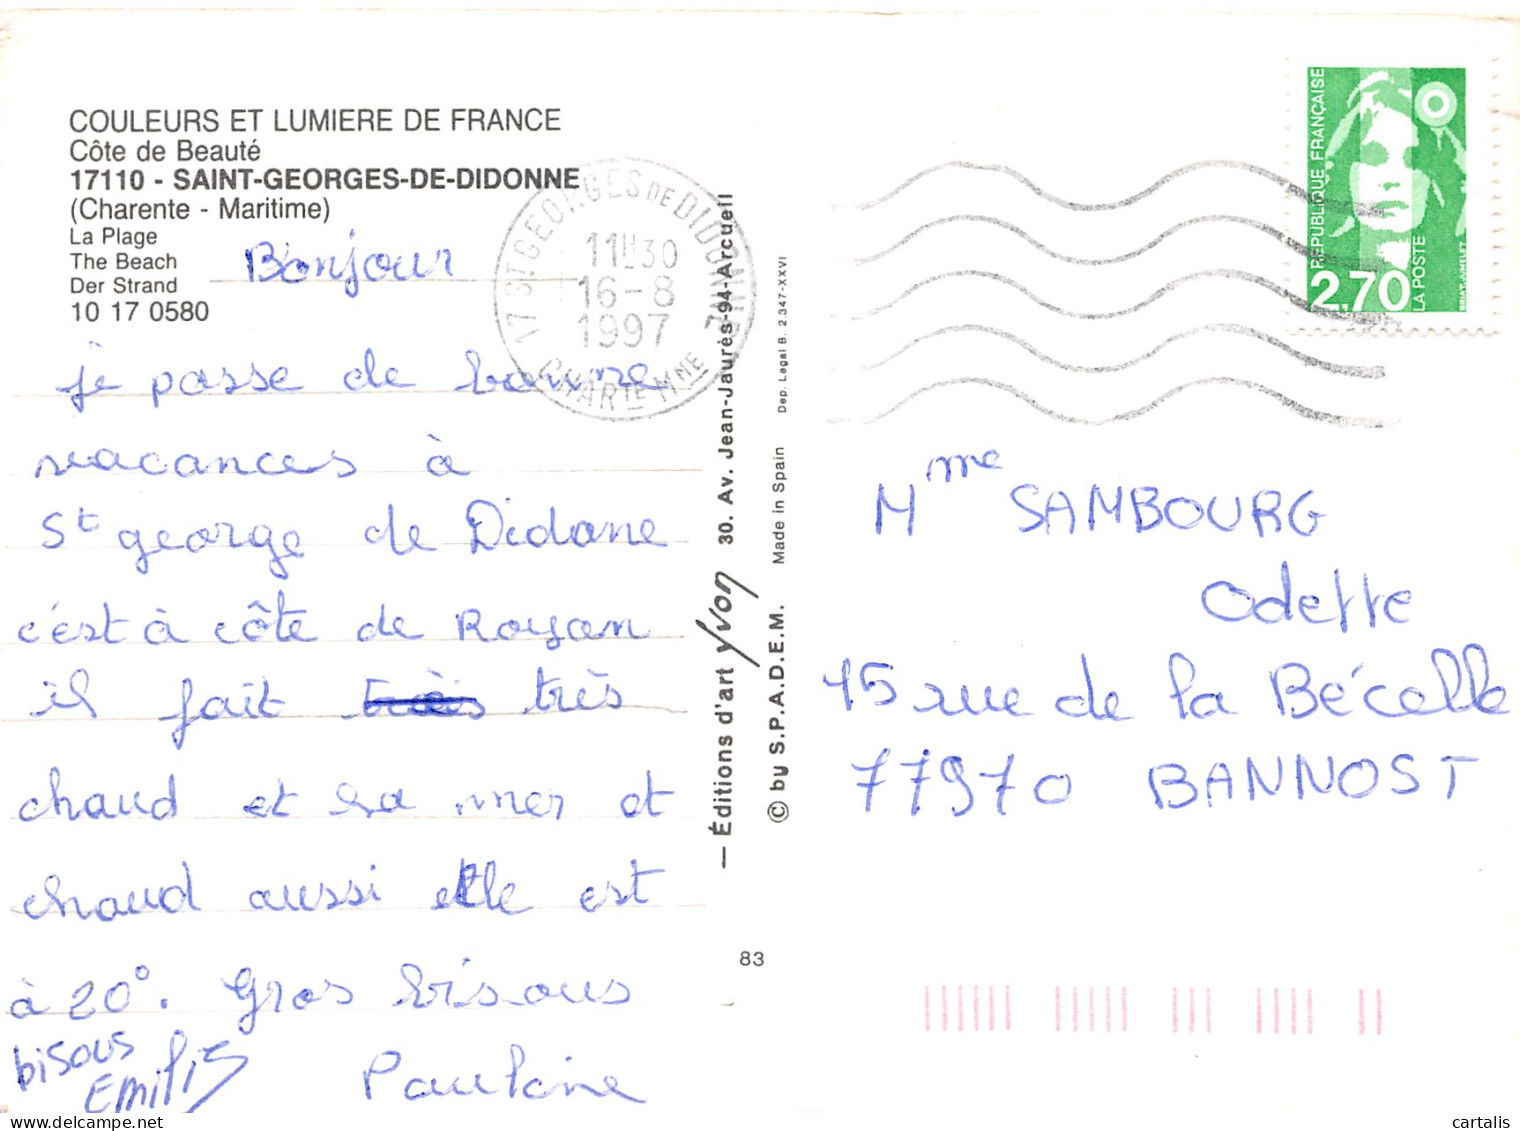 COULEURS ET LUMIERE DE FRANCE
Côte de Beauté
17110 - SAINT-GEORGES-DE-DIDONNE
(Charente - Maritime)
La Plage
The Beach
Der Strand
10 17 0580
Bonjour
je passe de bonne
vacances à
St george de Didone
c'est à côte de Royan
il fait très
chaud et la mer et
chaud aussi elle est
à 20°. Gros bisous
bisous
Emilie
Pauline
17 ST GEORGES DE DIDONNE
11H30
16-8
1997
CHARTE MNE
— Éditions d'art Yvon 30. Av. Jean-Jaurès-94-Arcueil
© by S.P.A.D.E.M. Made in Spain Dep. Legal B. 2.347-XXVI
83
RÉPUBLIQUE FRANÇAISE
2,70
LA POSTE
BRIAT-JUMELET
Mme SAMBOURG
Odette
15 rue de la Bécelle
77970 BANNOST
cartalis